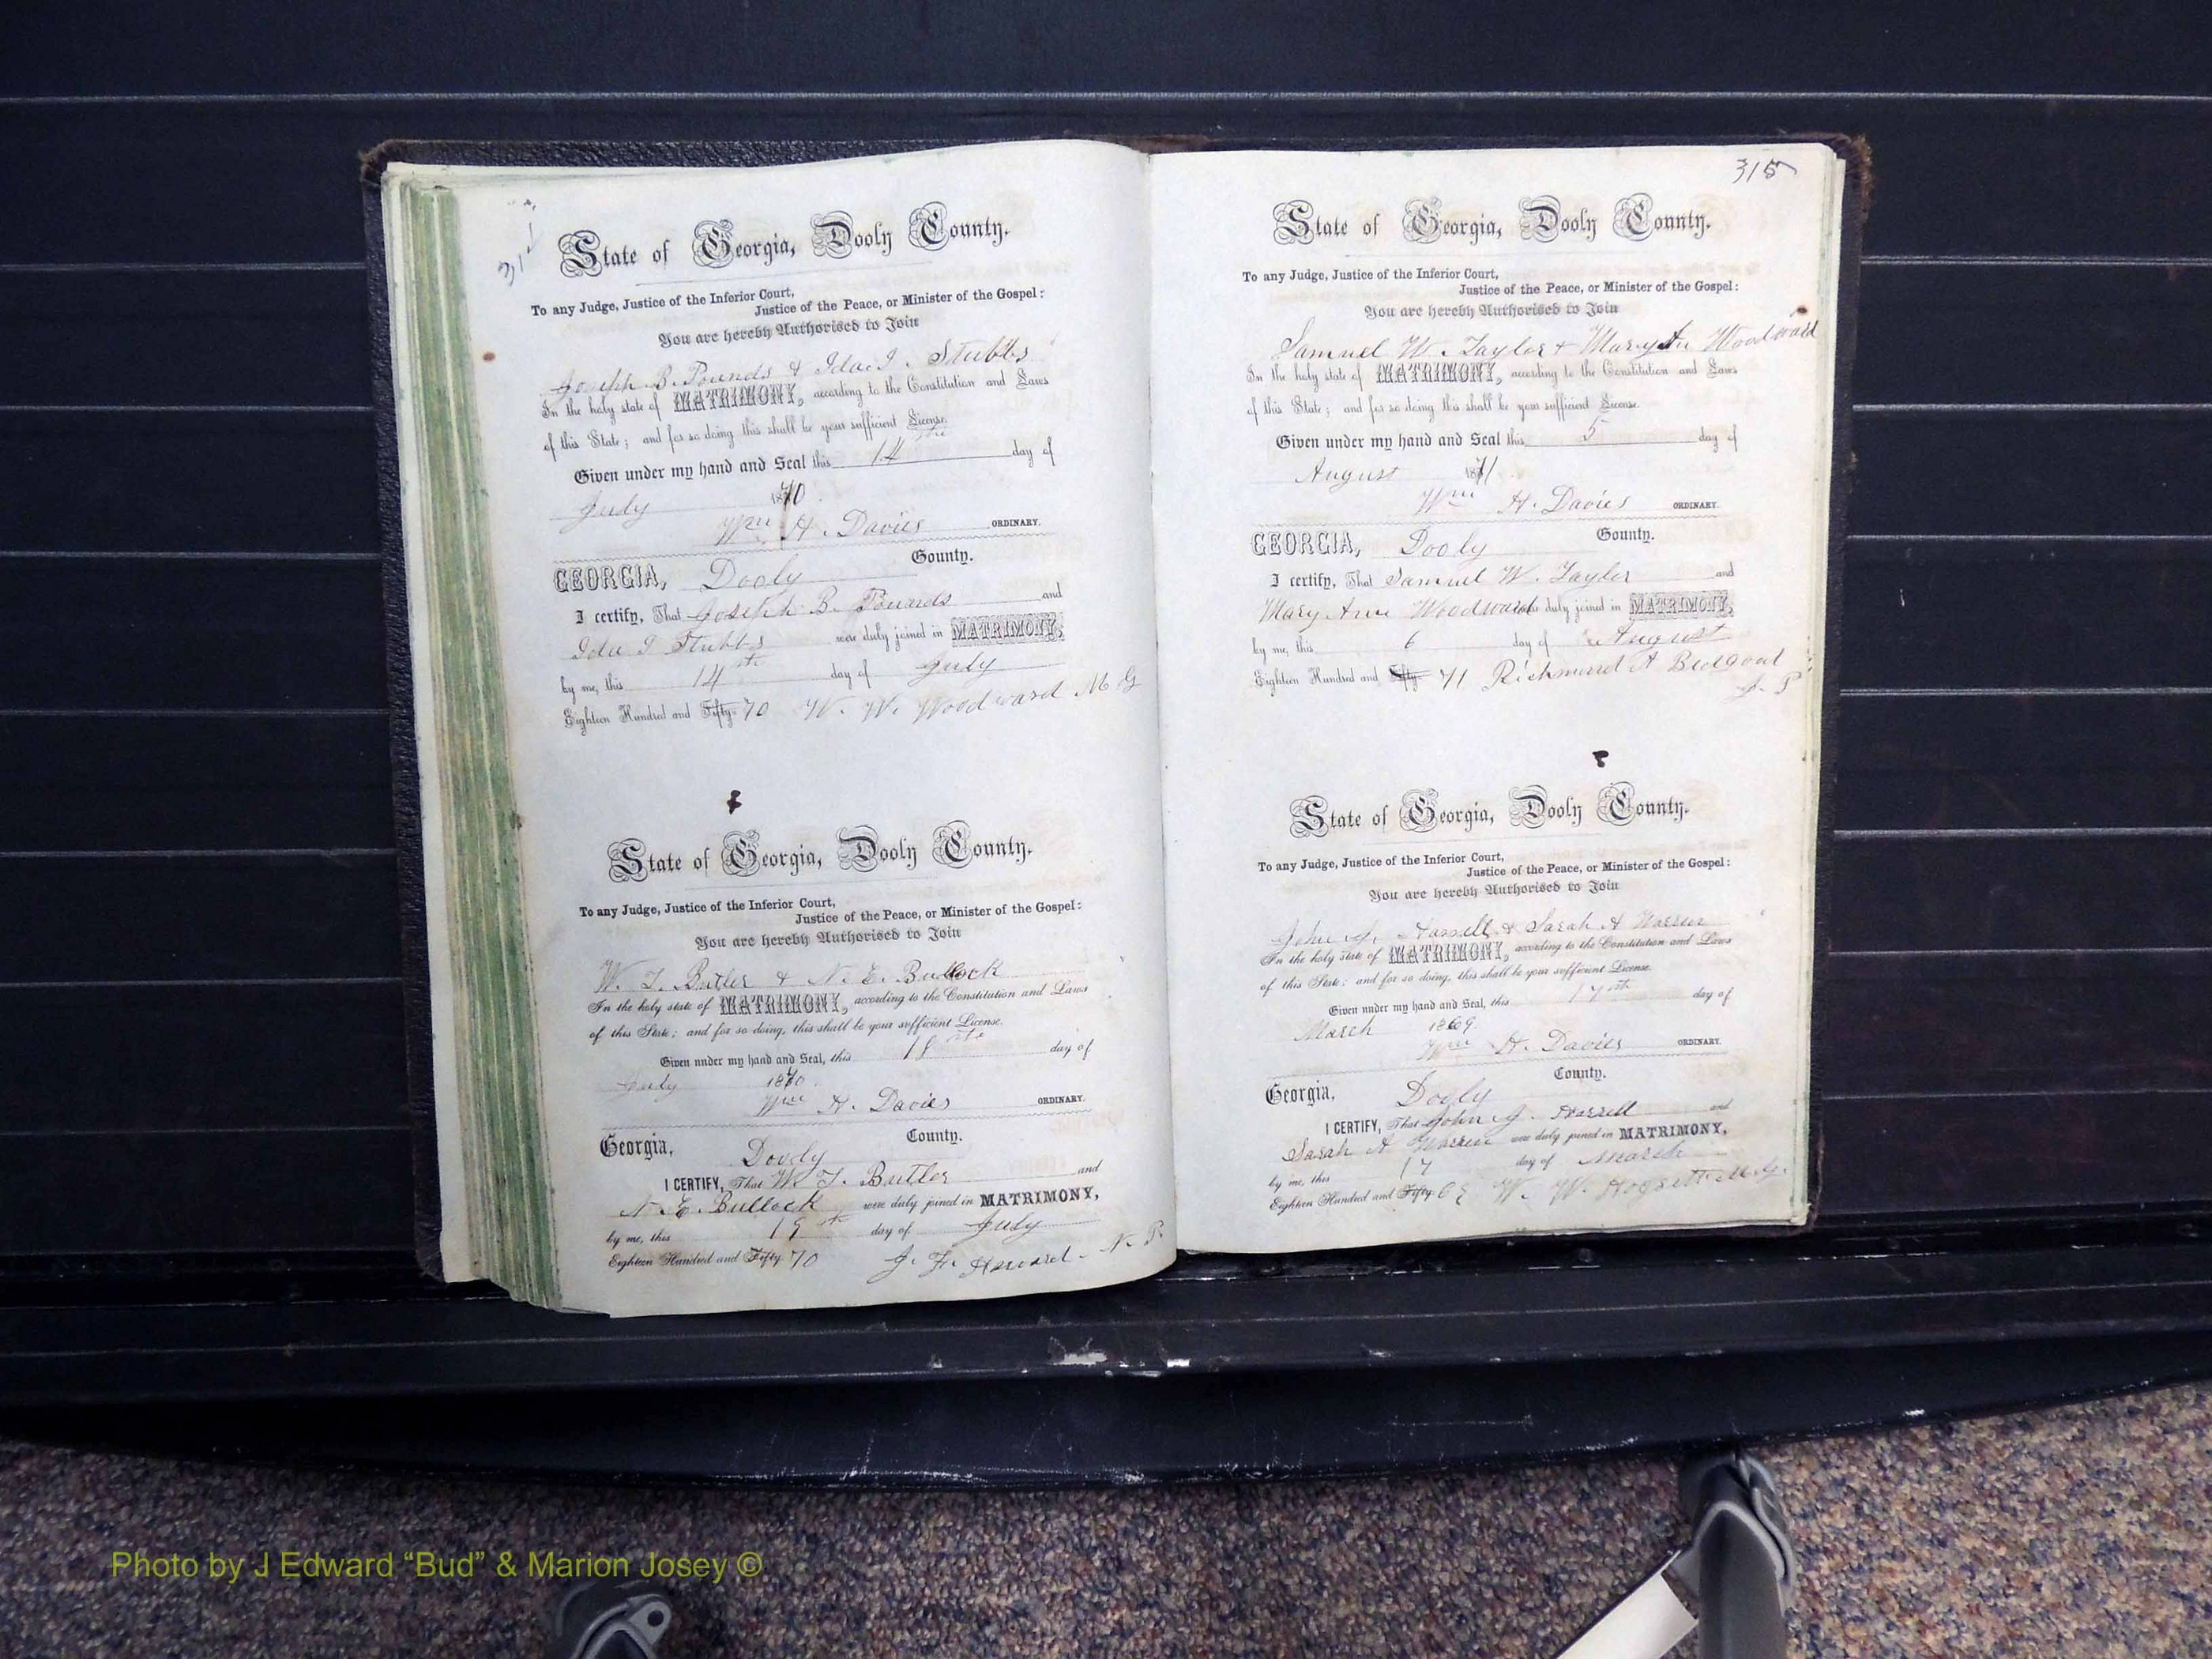 State of Georgia, Dooly County.
To any Judge, Justice of the Inferior Court,
Justice of the Peace, or Minister of the Gospel:
You are hereby Authorised to Join
Joseph B. Pounds & Ida I. Stubbs
In the holy state of MATRIMONY, according to the Constitution and Laws
of this State; and for so doing this shall be your sufficient License.
Given under my hand and Seal this 14th day of
July 1870.
Wm H. Davies ORDINARY.
GEORGIA, Dooly County.
I certify, That Joseph B. Pounds and
Ida I Stubbs were duly joined in MATRIMONY,
by me, this 14th day of July
Eighteen Hundred and Fifty 70 W. W. Woodward M G
State of Georgia, Dooly County.
To any Judge, Justice of the Inferior Court,
Justice of the Peace, or Minister of the Gospel:
You are hereby Authorised to Join
W. T. Butler & N. E. Bullock
In the holy state of MATRIMONY, according to the Constitution and Laws
of this State; and for so doing, this shall be your sufficient License.
Given under my hand and Seal, this 18th day of
July 1870.
Wm H. Davies ORDINARY.
Georgia, Dooly County.
I CERTIFY, That W. T. Butler and
N. E. Bullock were duly joined in MATRIMONY,
by me, this 19th day of July
Eighteen Hundred and Fifty 70 J. F. Howard - N. P.
315
State of Georgia, Dooly County.
To any Judge, Justice of the Inferior Court,
Justice of the Peace, or Minister of the Gospel:
You are hereby Authorised to Join
Samuel W. Taylor & Mary An Woodward
In the holy state of MATRIMONY, according to the Constitution and Laws
of this State; and for so doing this shall be your sufficient License.
Given under my hand and Seal this 5 day of
August 1871.
Wm H. Davies ORDINARY.
GEORGIA, Dooly County.
I certify, That Samuel W. Taylor and
Mary Ann Woodward were duly joined in MATRIMONY,
by me, this 6 day of August
Eighteen Hundred and Fifty 71 Richmond A Bedgood
J. P
State of Georgia, Dooly County.
To any Judge, Justice of the Inferior Court,
Justice of the Peace, or Minister of the Gospel:
You are hereby Authorised to Join
John J. Harrell & Sarah A Warren
In the holy state of MATRIMONY, according to the Constitution and Laws
of this State: and for so doing, this shall be your sufficient License.
Given under my hand and Seal, this 17th day of
March 1869.
Wm H. Davies ORDINARY.
Georgia, Dooly County.
I CERTIFY, That John J. Harrell and
Sarah A Warren were duly joined in MATRIMONY,
by me, this 17 day of March
Eighteen Hundred and Fifty W. W. Hogsett M. G.
Photo by J Edward “Bud” & Marion Josey ©